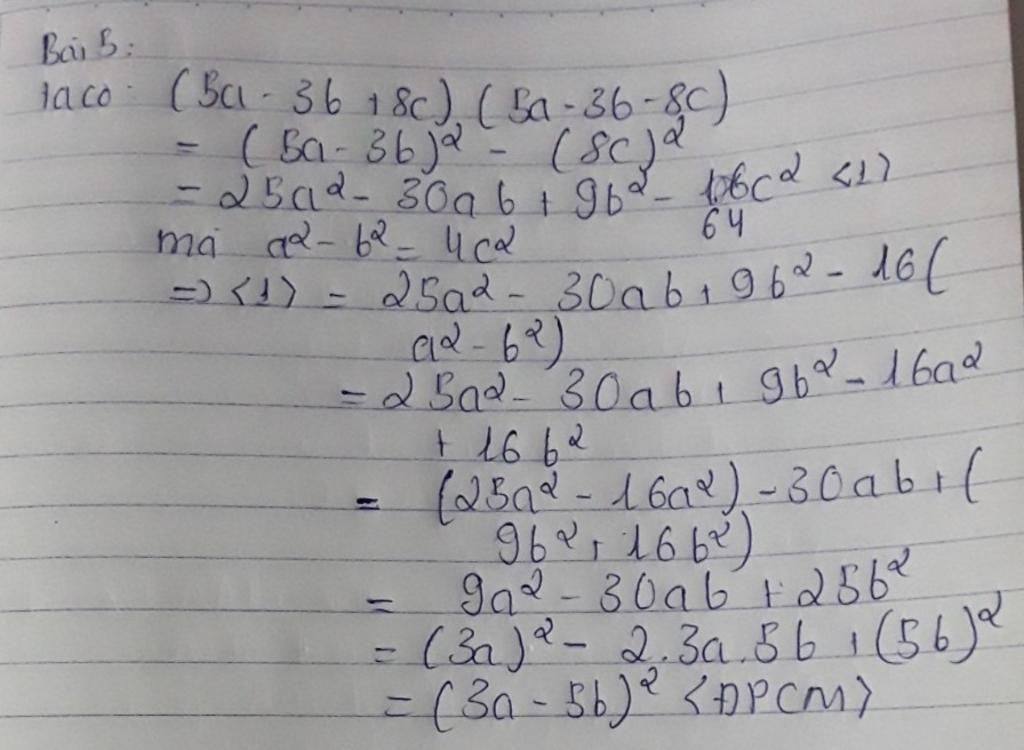 Bài 5:
Ta có: (5a - 3b + 8c).(5a - 3b - 8c)
= (5a - 3b)² - (8c)²
= 25a² - 30ab + 9b² - c² <1>
64
mà a² - b² = 4c²
=> <1> = 25a² - 30ab + 9b² - 16(
a² - b²)
= 25a² - 30ab + 9b² - 16a²
+ 16b²
= (25a² - 16a²) - 30ab + (
9b² + 16b²)
= 9a² - 30ab + 25b²
= (3a)² - 2.3a.5b + (5b)²
= (3a - 5b)² <ĐPCM>